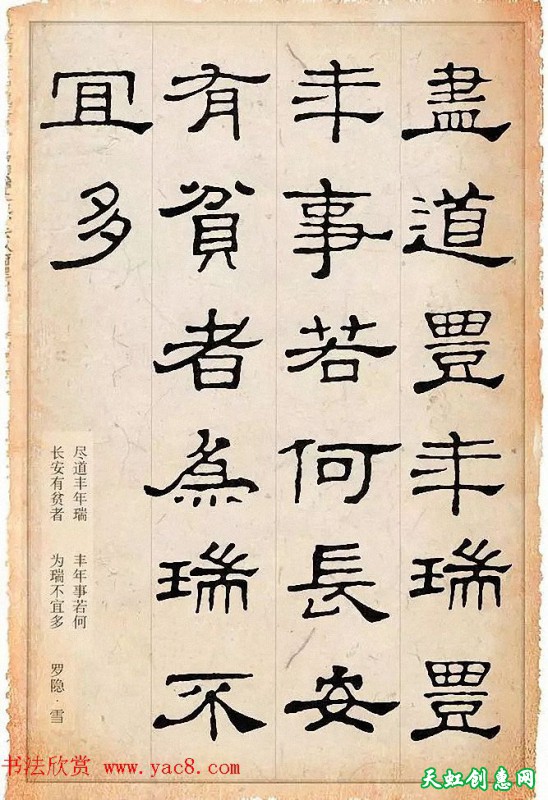 盡道豐年瑞豐
年事若何長安
有貧者為瑞不
宜多
尽道丰年瑞 丰年事若何
长安有贫者 为瑞不宜多 罗隐·雪
书法欣赏 www.yac8.com
天虹创惠网